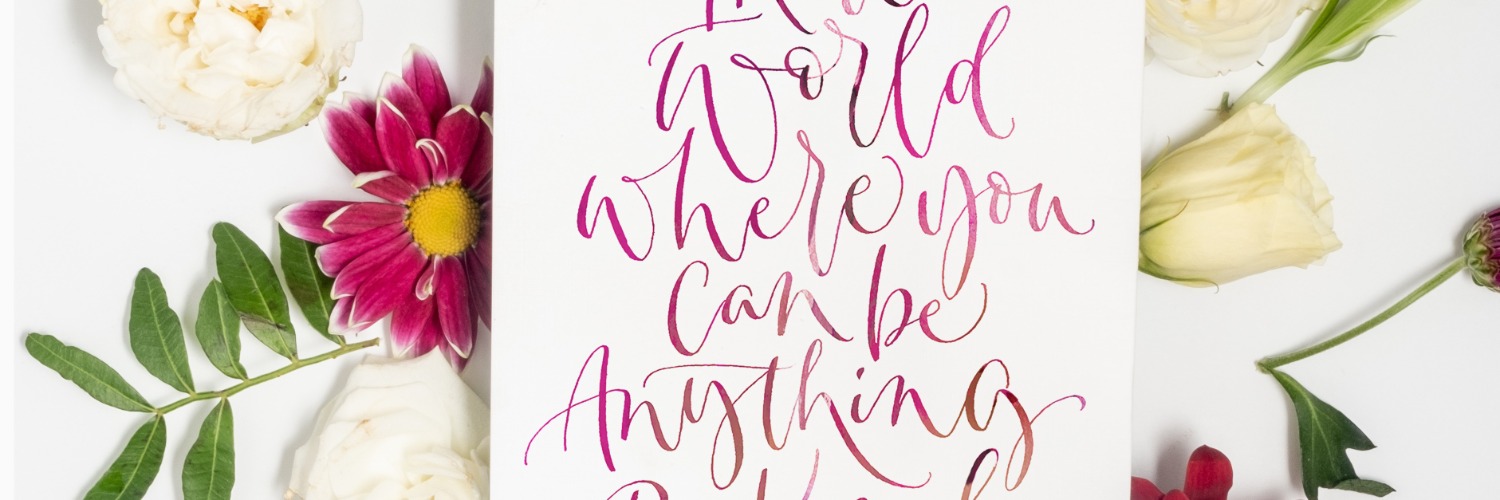 World
where you
can be
Anything